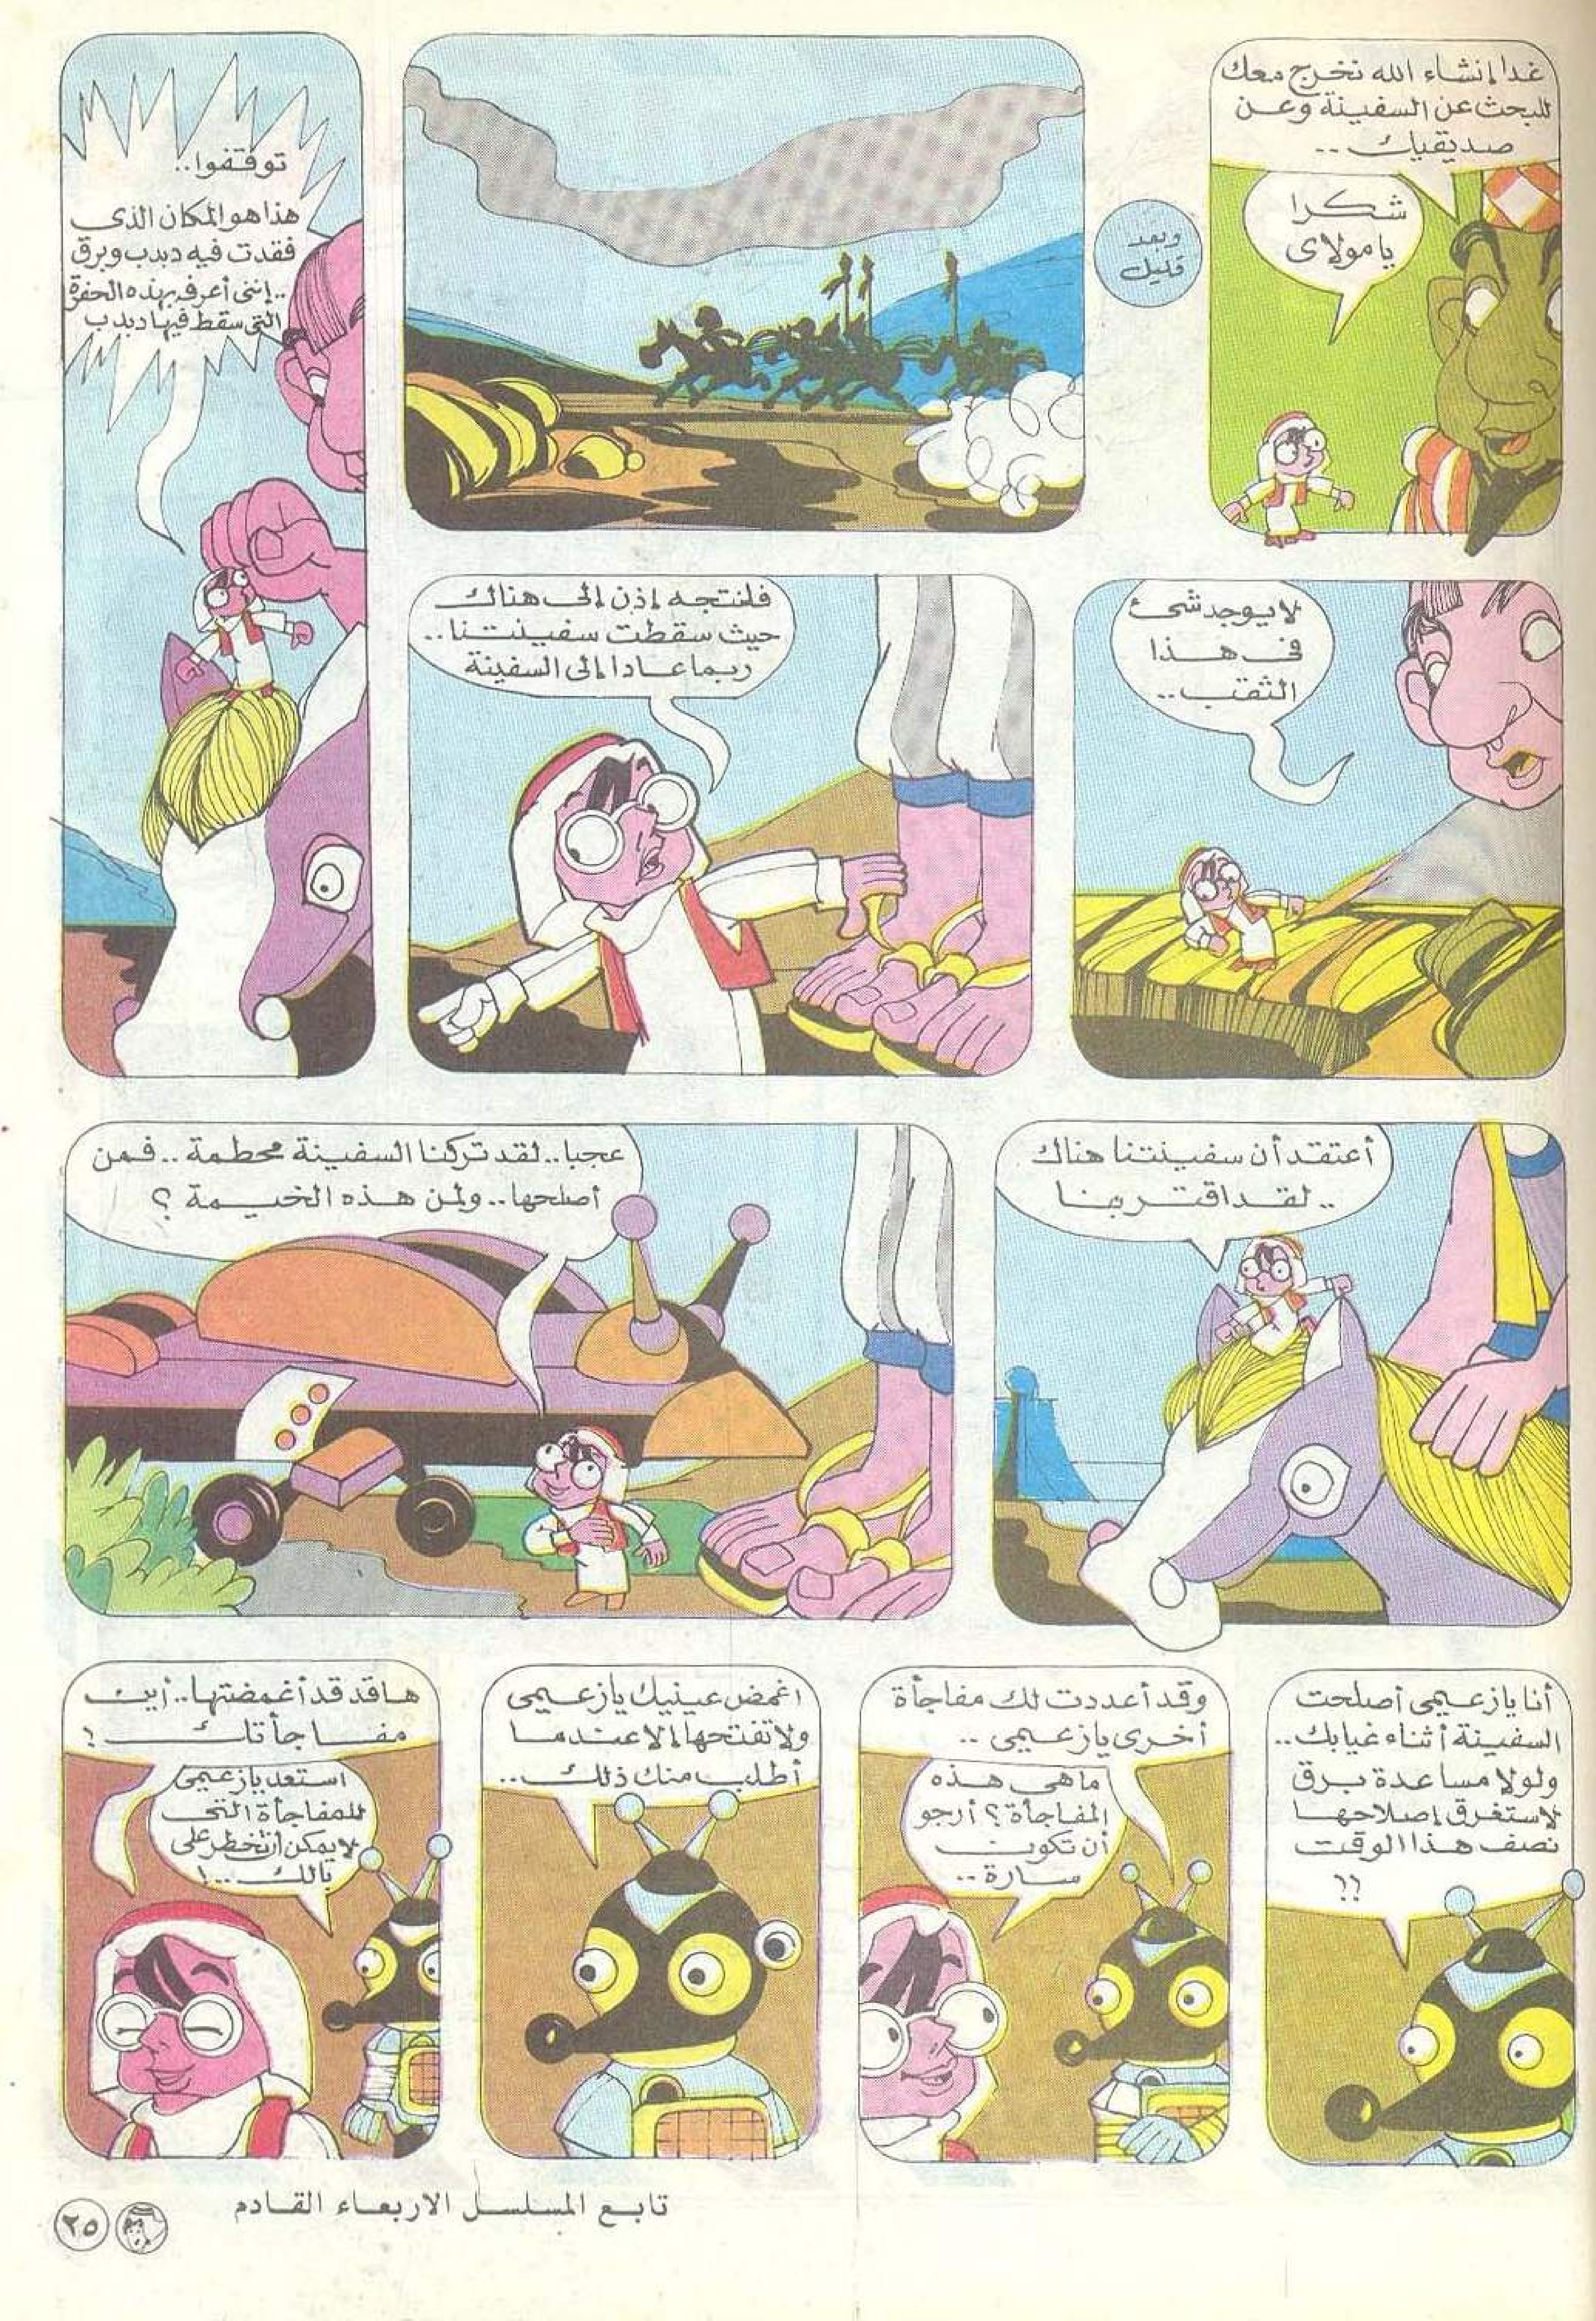 غدا إنشاء الله نخرج معك
للبحث عن السفينة وعن
صديقيك ..
شكرا
يا مولاى
وبعد
قليل
توقفوا..
هذا هو المكان الذى
فقدت فيه دبدب وبرق
..إننى أعرفه بهذه الحفرة
التى سقط فيها دبدب
لا يوجد شئ
فى هذا
الثقب..
فلنتجه إذن إلى هناك
حيث سقطت سفينتنا..
ربما عادا إلى السفينة
أعتقد أن سفينتنا هناك
.. لقد اقتربنا
عجبا.. لقد تركنا السفينة محطمة .. فمن
أصلحها.. ولمن هذه الخيمة ؟
أنا يا زعيمى أصلحت
السفينة أثناء غيابك..
ولولا مساعدة برق
لاستغرق إصلاحها
نصف هذا الوقت
؟؟
وقد أعددت لك مفاجأة
أخرى يا زعيمى ..
ما هى هذه
المفاجأة ؟ أرجو
أن تكون
سارة ..
اغمض عينيك يا زعيمى
ولا تفتحها إلا عندما
أطلب منك ذلك..
ها قد قد أغمضتها.. أين
مفاجأتك ؟
استعد يا زعيمى
للمفاجأة التى
لا يمكن أن تخطر على
بالك ..!
تابع المسلسل الاربعاء القادم
٢٥